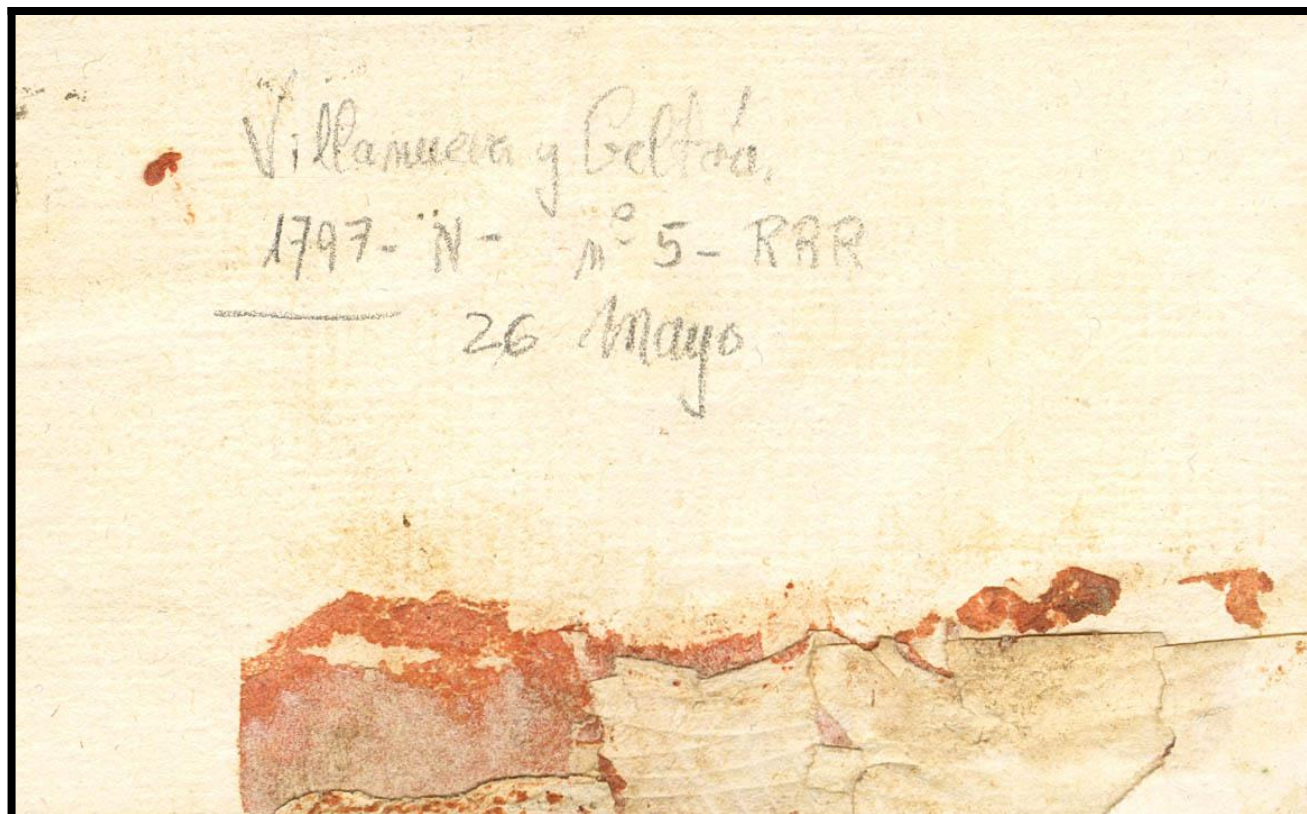 Villanueva y Geltrú.
1797- N - nº 5 - RRR
26 Mayo